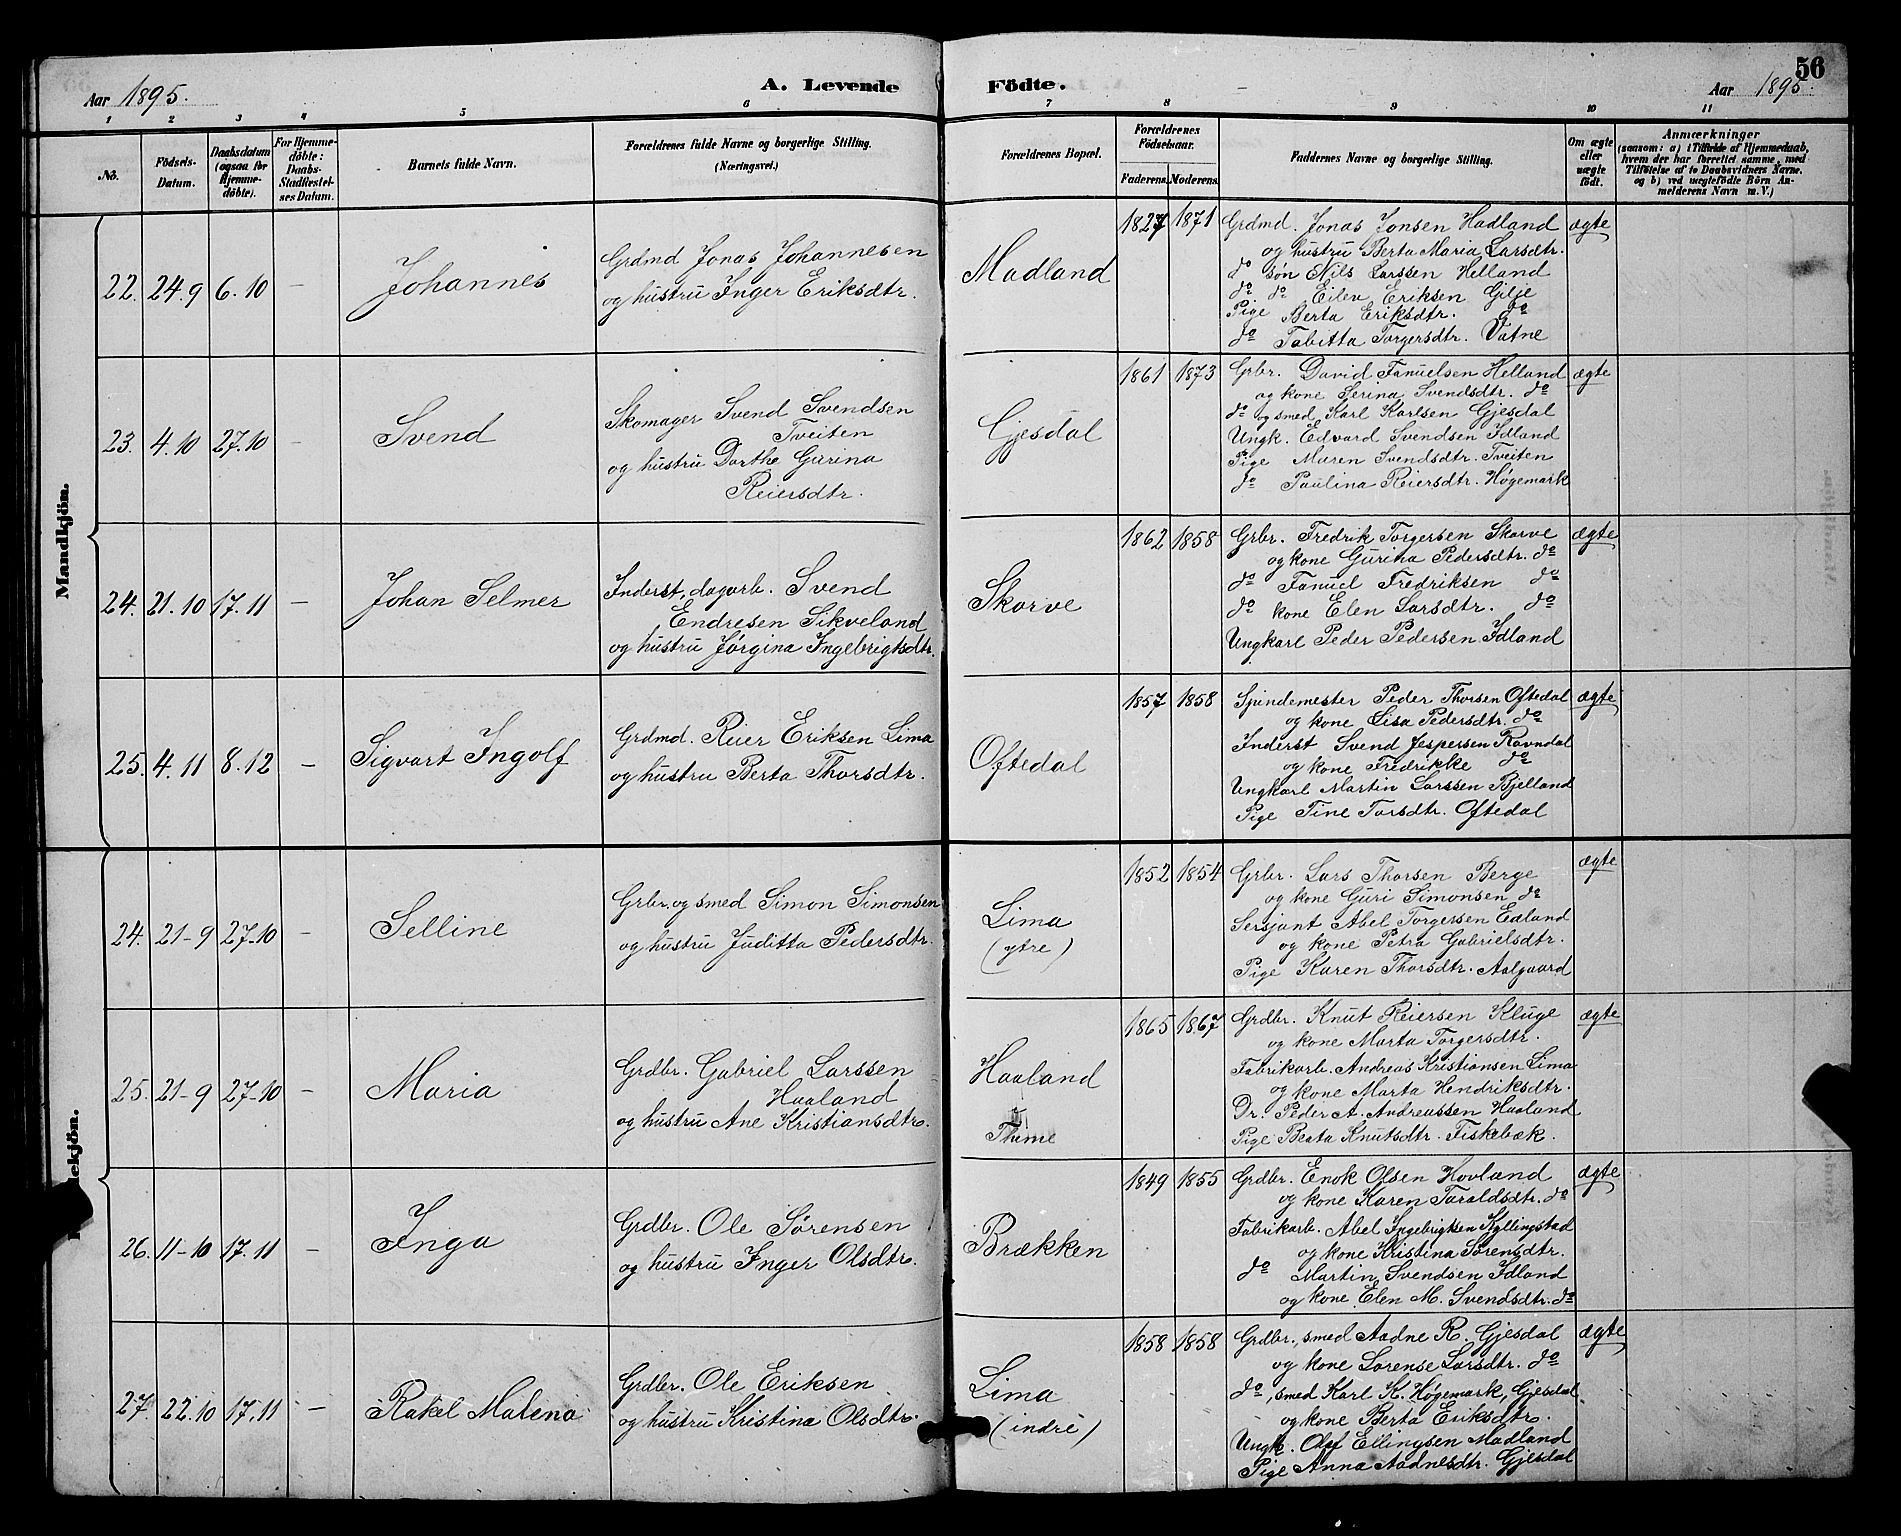 56
Aar 1895.
A. Levende Födte.
Aar 1895.
1 2 3 4 5 6 7 8 9 10 11
No.
Födsels-Datum.
Daabsdatum (ogsaa for Hjemme-döbte).
For Hjemme-döbte: Daabs-Stadfæstel-ses Datum.
Barnets fulde Navn.
Forældrenes fulde Navne og borgerlige Stilling.
(Næringsvei.)
Forældrenes Bopæl.
Forældrenes Födselsaar.
Faderens. Moderens.
Faddernes Navne og borgerlige Stilling.
Om ægte eller uægte födt.
Anmærkninger
(saasom: a) i Tilfælde af Hjemmedaab,
hvem der har forrettet samme, med
Tilföielse af to Daabsvidners Navne.
og b) ved uægtefödte Börn An-
melderens Navn m. V.)
Mandkjön.
22. 24.9 6.10 – Johannes
Grdmd Jonas Johannesen
og hustru Inger Eriksdtr.
Madland
1827 1871
Grdmd. Jonas Jonsen Hadland
og hustru Berta Maria Larsdtr.
do søn Nils Larssen Helland
do do Eilev Eriksen Gilje
Pige Berta Eriksdtr. do
do Tabitta Torgersdtr. Vatne
ægte
23. 4.10 27.10 – Svend
Skomager Svend Svendsen
Tveiten
og hustru Dorthe Gurina
Reiersdtr.
Gjesdal
1861 1873
Grbr. David Fanuelsen Helland
og kone Serina Svendsdtr. do
do og smed Karl Karlsen Gjesdal
Ungk. Edvard Svendsen Idland
Pige Maren Svendsdtr. Tveiten
do Paulina Reiersdtr. Høgemark
ægte
24. 21.10 17.11 – Johan Selmer
Inderst, dagarb. Svend
Endresen Sikveland
og hustru Jørgina Ingebrigtsdtr.
Skorve
1862 1858
Grbr. Fredrik Torgersen Skorve
og kone Gurina Pedersdtr. do
do Fanuel Fredriksen do
do kone Elen Larsdtr. do
Ungkarl Peder Pedersen Idland
ægte
25. 4.11 8.12 – Sigvart Ingolf
Grdmd. Reier Eriksen Lima
og hustru Berta Thorsdtr.
Oftedal
1857 1858
Spindemester Peder Thorsen Oftedal
og kone Lisa Pedersdtr. do
Inderst Svend Jespersen Ravndal
og kone Fredrikke do
Ungkarl Martin Larssen Bjelland
Pige Tine Torsdtr. Oftedal
ægte
24. 21-9 27-10 – Selline
Grbr. og smed Simon Simonsen
og hustru Juditta Pedersdtr.
Lima
(ytre)
1852 1854
Grbr. Lars Thorsen Berge
og kone Guri Simonsen do
Sersjant Abel Torgersen Edland
og kone Petra Gabrielsdtr.
Pige Karen Thorsdtr. Aalgaard
ægte
25. 21-9 27-10 – Maria
Grdbr. Gabriel Larssen
Haaland
og hustru Ane Kristiansdtr.
Haaland
i
Thime
1865 1867
Grdbr. Knut Reiersen Kluge
og kone Marta Torgersdtr.
Fabrikarb. Andreas Kristiansen Lima
og kone Marta Hendriksdtr.
Dr. Peder A. Andreassen Haaland
Pige Berta Knutsdtr. Fiskebæk.
ægte
26. 11-10 17.11 – Inga
Grdbr. Ole Sørensen
og hustru Inger Olsdtr.
Brækken
1849 1855
Grdbr. Enok Olsen Hovland
og kone Karen Taraldsdtr. do
Fabrikarb. Abel Ingebrigtsen Kyllingstad
og kone Kristina Sørensdtr.
do Martin Svendsen Idland
og kone Elen M. Svendsdtr. do
ægte
27. 22.10 17.11 – Rakel Malena
Grdbr. Ole Eriksen
og hustru Kristina Olsdtr.
Lima
(indre)
1858 1858
Grdbr., smed Aadne R. Gjesdal
og kone Lorense Larsdtr. do
do, smed Karl K. Høgemark, Gjesdal
og kone Berta Eriksdtr.
Ungk. Olaf Ellingsen Madland
Pige Anna Aadnesdtr. Gjesdal
ægte